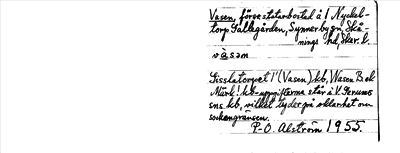 Vasen, förr statarbostad å 1 Nyckel-
torp Gallegården, Synnerby sn, Skå-
nings hd, Skar. l.
våsam
Sisslatorpet l. (Vasen) kb, Wasen B ek
Märk! kb-uppgifterna står å V. Gerums
sns kb, vilket tyder på oklarhet om
sockengränsen.
P-O. Alström 1955.